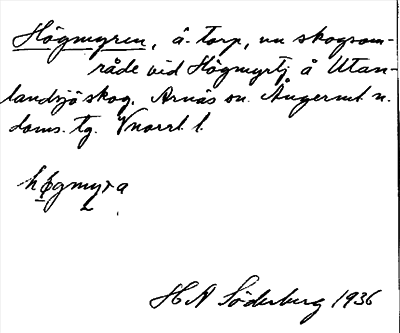 Högmyren, â. torp, nu skogsom-
råde vid Högmyrtj. å Utan-
landsjö skog. Arnäs sn. Ångerml. n.
doms. tg. Vnorrl. l.
högmyra
H A Söderberg 1936